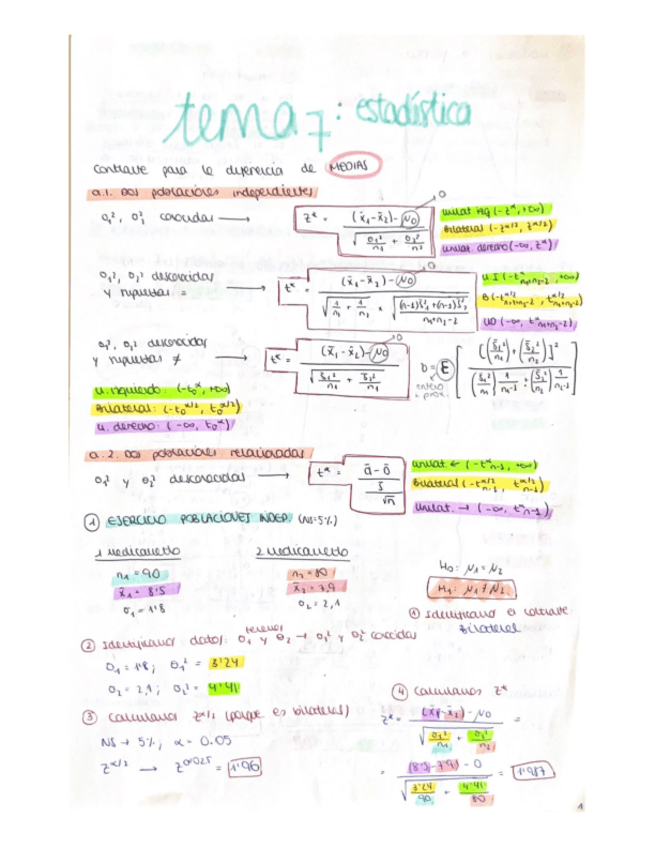 tema 7: estadística
Contraste para la diferencia de MEDIAS
a.1. Dos poblaciones independientes
σ₁², σ₂² conocidas → z* = (x̄₁-x̄₂)-μ0 / √(σ₁²/n₁ + σ₂²/n₂) → 0
unilat izq (-z^α, +∞)
Bilateral (-z^α/2, z^α/2)
unilat. derecho (-∞, z^α)
σ₁², σ₂² desconocidas
y supuestas = → t* = (x̄₁-x̄₂)-μ0 → 0
u.I (-t^α n₁+n₂-2, +∞)
B (-t^α/2 n₁+n₂-2, t^α/2 n₁+n₂-2)
UD (-∞, t^α n₁+n₂-2)
σ₁², σ₂² desconocidas
y supuestas ≠ → t* = (x̄₁-x̄₂)-μ0 → 0
entero + prox.
u. izquierdo: (-t_υ^α, +∞)
Bilateral: (-t_υ^α/2, t_υ^α/2)
u. derecho: (-∞, t_υ^α)
a.2. Dos poblaciones relacionadas
σ₁² y σ₂² desconocidas → t* = d̄-0 / (s/√n)
unilat ← (-t^α n-1, +∞)
Bilateral (-t^α/2 n-1, t^α/2 n-1)
unilat. → (-∞, t^α n-1)
① EJERCICIO POBLACIONES INDEP. (NS=5%)
1 medicamento
n₁ = 90
x̄₁ = 8'5
σ₁ = 1'8
2 medicamento
n₂ = 80
x̄₂ = 7,9
σ₂ = 2,1
H₀: μ₁ = μ₂
H₁: μ₁ ≠ μ₂
① Identificamos el contraste
Bilateral
② Identificamos datos: tenemos σ₁ y σ₂ → σ₁² y σ₂² conocidas
σ₁ = 1'8; σ₁² = 3'24
σ₂ = 2,1; σ₂² = 4'41
③ Calculamos z^α/2 (porque es bilateral)
NS → 5%; α = 0.05
z^α/2 → z^0'025 = 1'96
④ Calculamos z*
z* = (x̄₁-x̄₂)-μ0 / √(σ₁²/n₁ + σ₂²/n₂) =
= (8'5-7'9) - 0 / √(3'24/90 + 4'41/80) = 1'987
1